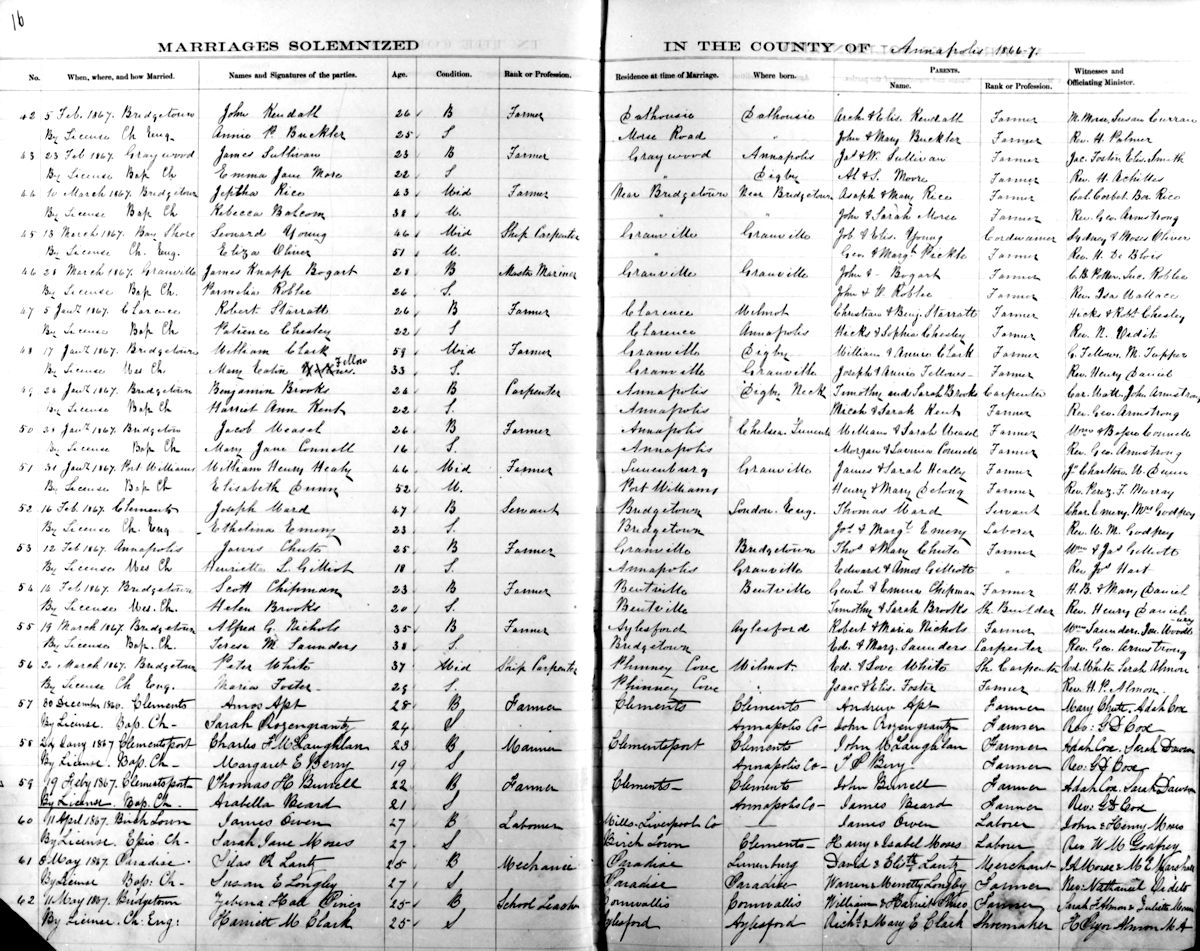 16
MARRIAGES SOLEMNIZED IN THE COUNTY OF Annapolis 1866-7.
No. When, where, and how Married. Names and Signatures of the parties. Age. Condition. Rank or Profession. Residence at time of Marriage. Where born. PARENTS. Name. Rank or Profession. Witnesses and Officiating Minister.
42 5 Feb. 1867. Bridgetown John Kendall 26 B Farmer Dalhousie Dalhousie Arch & Elis. Kendall Farmer M. Morse, Susan Curran
By License Ch Eng. Annie P. Buckler 25 S Morse Road " John & Mary Buckler Farmer Rev. H. Palmer
43 23 Feb 1867. Graywood James Sullivan 23 B Farmer Graywood Annapolis Jas & W. Sullivan Farmer Jac. Foster Elis. Smith
By License Bap Ch Emma Jane More 22 S. " Digby Al & S. Moore Farmer Rev. H. Achilles
44 10 March 1867. Bridgetown Jeptha Rice 43 Wid Farmer Near Bridgetown Near Bridgetown Asaph & Mary Rice Farmer Cal. Corbet. Rice
By License Bap Ch Rebecca Balcom 38 W. " " John & Sarah Morse Farmer Rev. Geo. Armstrong
45 13 March 1867. Bay Shore Leonard Young 46 Wid Ship Carpenter Granville Granville Job & Elis. Young Cordwainer & Moses Oliver
By License Ch. Eng. Eliza Oliver 51 W. " " Geo. & Margt. Pickle Farmer Rev. H. De Blois
46 28 March 1867. Granville James Knapp Bogart 28 B Master Mariner Granville Granville John & - Bogart Farmer C.B. Jac. Roblee
By License Bap Ch. Parmelia Roblee 26 S. John & W. Roblee Farmer Rev. Isa Wallace
47 5 Jany. 1867. Clarence Robert Starratt 26 B Farmer Clarence Wilmot Christian & Benj. Starratt Farmer Hicks & Robt Chesley
By License Bap Ch Patience Chesley 22 S Clarence Annapolis Hicks & Sophia Chesley Farmer Rev. N. Vidito
48 17 Jany. 1867. Bridgetown William Clark 59 Wid Farmer Granville Digby William & Annie Clark Farmer G. Fellows. M. Tupper
By License Wes Ch. Mary Fellows 33 S. Granville Granville Joseph & Annie Fellows Farmer Rev. Henry Daniel
49 24 Jany. 1867. Bridgetown Benjamin Brooks 26 B Carpenter Annapolis Digby Neck Timothy and Sarah Brooks Carpenter John Armstrong
By License Bap Ch Harriet Ann Kent 22 S. Annapolis Micah & Sarah Kent Farmer Rev. Geo. Armstrong
50 Jany. 1867. Bridgetown Jacob Measel 26 B Farmer Annapolis Chelsea William & Sarah Farmer Wm & Connell
By License Bap Ch. Mary Jane Connell 16 S. Annapolis Morgan & Lavinia Connell Farmer Rev. Geo. Armstrong
51 31 Jany. 1867. Port Williams William Henry Healy 46 Wid Farmer Lunenburg Granville James & Sarah Healy Farmer Jo. Charlton W. Dunn
By License Bap Ch Elisabeth Dunn 52 W. Port Williams Henry & Mary Delong Farmer Rev. Perez F. Murray
52 16 Feb. 1867. Clement Joseph Ward 47 B Servant Bridgetown London. Eng. Thomas Ward Servant Emery. Mrs Godfrey
By License Ch Eng Ethelina Emery 23 S. Bridgetown Jos. & Margt. Emery Laborer Rev. W. M. Godfrey
53 12 Feb 1867. Annapolis Jarvis Chute 25 B Farmer Granville Bridgetown Thos & Mary Chute Farmer Wm & Jas Gilliott
By License Wes Ch Henrietta L. Gilliot 18 S. Annapolis Granville Edward & Amos Gilliott " Rev. Jos. Hart
54 14 Feb. 1867. Bridgetown Scott Chipman 23 B Farmer Bentville Bentville Geo. L. & Emma Chipman Farmer H.B. & Mary Daniel
By License Wes. Ch. Helen Brooks 20 S. Bentville Timothy & Sarah Brooks Sh. Builder Rev. Henry Daniel
55 19 March 1867. Bridgetown Alfred G. Nichols 35 B Farmer Aylesford Aylesford Robert & Maria Nichols Farmer Wm Saunders.
By License Bap. Ch. Teresa M. Saunders 38 S. Bridgetown Ed. & Marg. Saunders Carpenter Rev. Geo. Armstrong
56 20 March 1867. Bridgetown Peter White 37 Wid Ship Carpenter Phinney Cove Wilmot Ed. & Love White Sh. Carpenter Ed. White Sarah Almon
By License Ch Eng. Maria Foster 29 S Phinney Cove " Isaac & Elis. Foster Farmer Rev. H.P. Almon.
57 30 December 1860. Clements Amos Apt 28 B Farmer Clements Clements Andrew Apt Farmer Mary Chute. Adah Cox
By License. Bap. Ch- Sarah Rozengrantz 24 S Annapolis Co- John Rozengrantz Farmer Rev: G D Cox
58 Jany 1867 Clementsport Charles F McLaughlan 23 B Mariner Clementsport Clements John McLaughlan Farmer Adah Cox. Sarah Dawson
By License. Bap. Ch- Margaret E Berry 19 S Annapolis Co- Berry Farmer Rev: G D Cox
59 19 Feby 1867. Clementsport Thomas H Burrell 22 B Farmer Clements- Clements John Burrell Farmer Adah Cox, Sarah Dawson
By License. Bap. Ch- Arabella Beard 21 S Annapolis Co- James Beard Farmer Rev: G D Cox
60 11 April 1867. Birch Town James Owen 27 B Labourer Mills-Liverpool Co — James Owen Laborer John & Henry Moses
By License. Epis: Ch- Sarah Jane Moses 27 S Birch Town Clements- Harry & Isabel Moses Labour Rev W M Godfrey
61 8 May 1867. Paradise Silas R Lantz 25 B Mechanic Paradise Lunenburg David & Elizth Lantz Merchant J A Morse & M E Marshall
By License Bap: Ch- Susan E Longley 27 S Paradise Paradise Warren & Longley Farmer Rev: Nathaniel Videto
62 11 May 1867. Bridgetown Zebina Hall Pineo 25 B School Teacher Cornwallis Cornwallis William & Harriet Pineo Farmer Sarah F Almon &
By License. Ch: Eng: Harriett M Clark 25 S Aylesford Aylesford Richd. & Mary E Clark Shoemaker H Pryor Almon M A